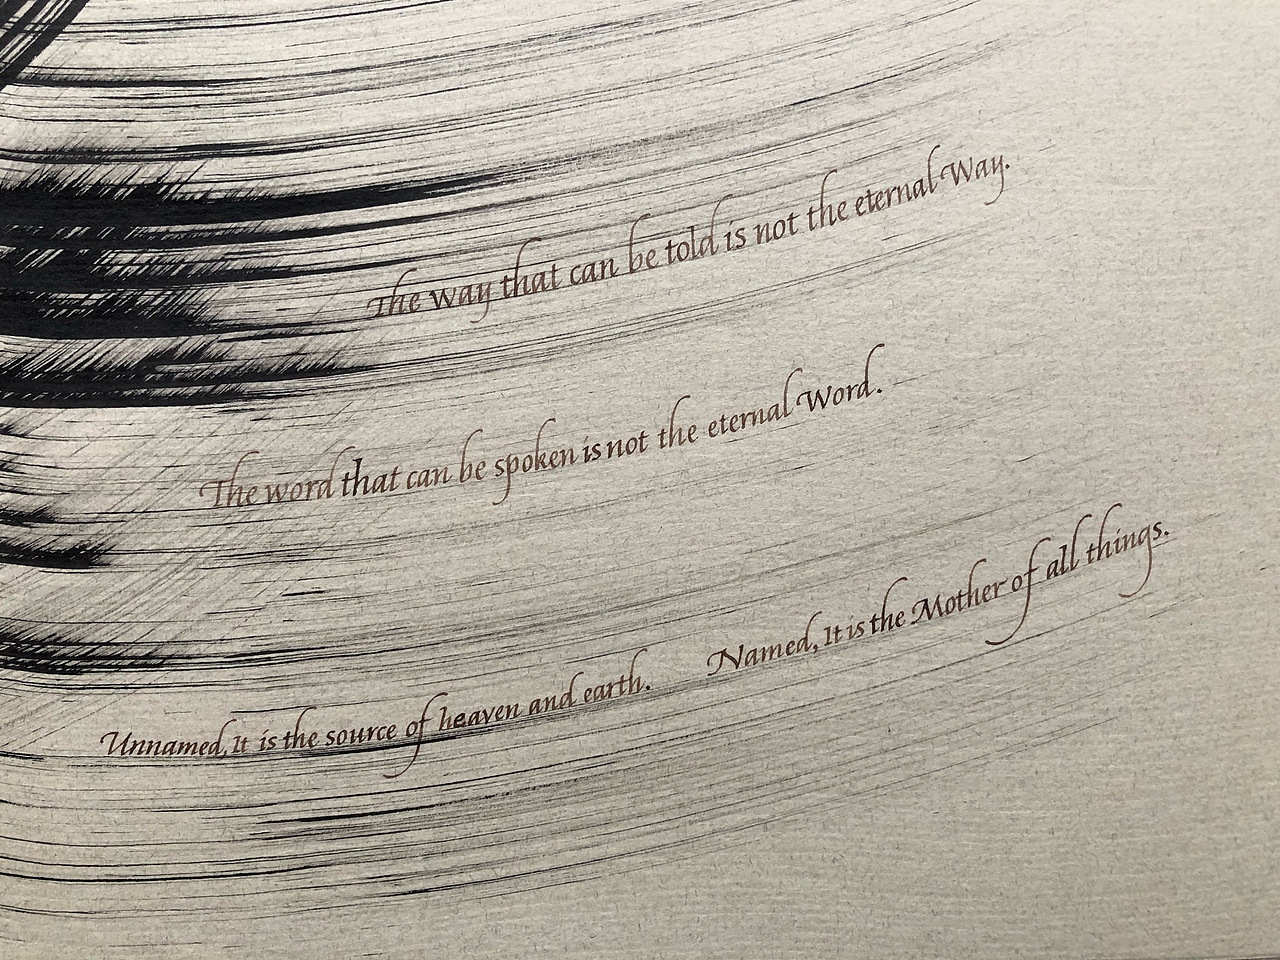 The way that can be told is not the eternal Way.
The word that can be spoken is not the eternal Word.
Unnamed, It is the source of heaven and earth. Named, It is the Mother of all things.